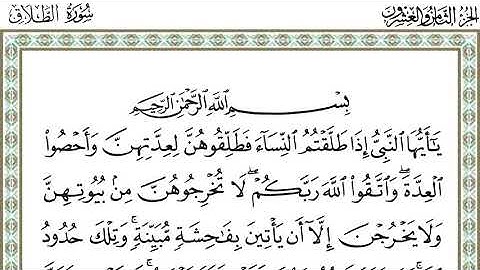 الجزء الثامن والعشرون
سورة الطلاق
بِسْمِ اللَّهِ الرَّحْمَٰنِ الرَّحِيمِ
يَـٰٓأَيُّهَا ٱلنَّبِىُّ إِذَا طَلَّقْتُمُ ٱلنِّسَآءَ فَطَلِّقُوهُنَّ لِعِدَّتِهِنَّ وَأَحْصُوا۟
ٱلْعِدَّةَ ۖ وَٱتَّقُوا۟ ٱللَّهَ رَبَّكُمْ ۖ لَا تُخْرِجُوهُنَّ مِنۢ بُيُوتِهِنَّ
وَلَا يَخْرُجْنَ إِلَّآ أَن يَأْتِينَ بِفَـٰحِشَةٍ مُّبَيِّنَةٍ ۚ وَتِلْكَ حُدُودُ